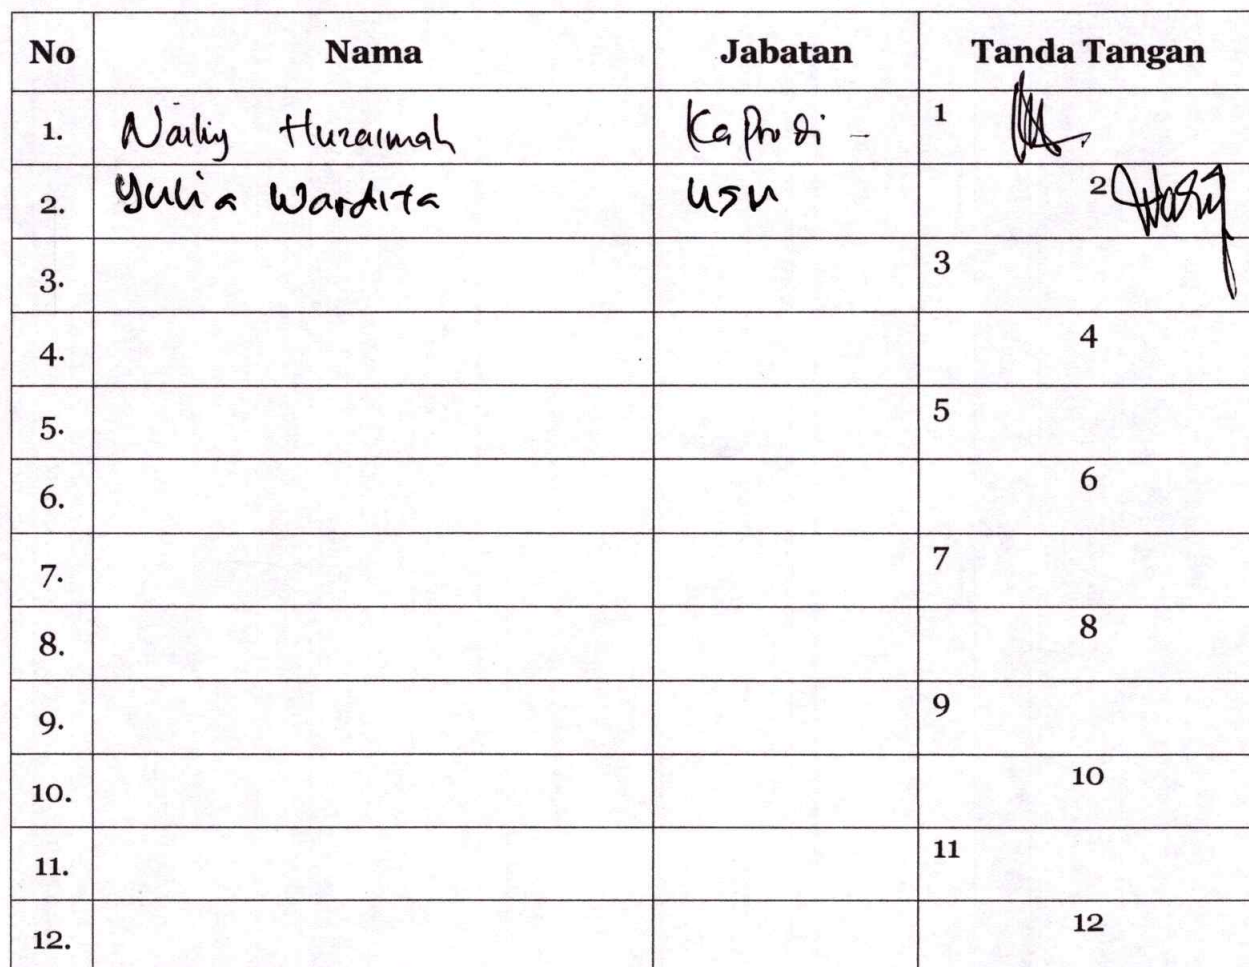 No Nama Jabatan Tanda Tangan
1. Naily Huzaimah Kaprodi - 1
2. Yulia Wardita 2
3. 3
4. 4
5. 5
6. 6
7. 7
8. 8
9. 9
10. 10
11. 11
12. 12